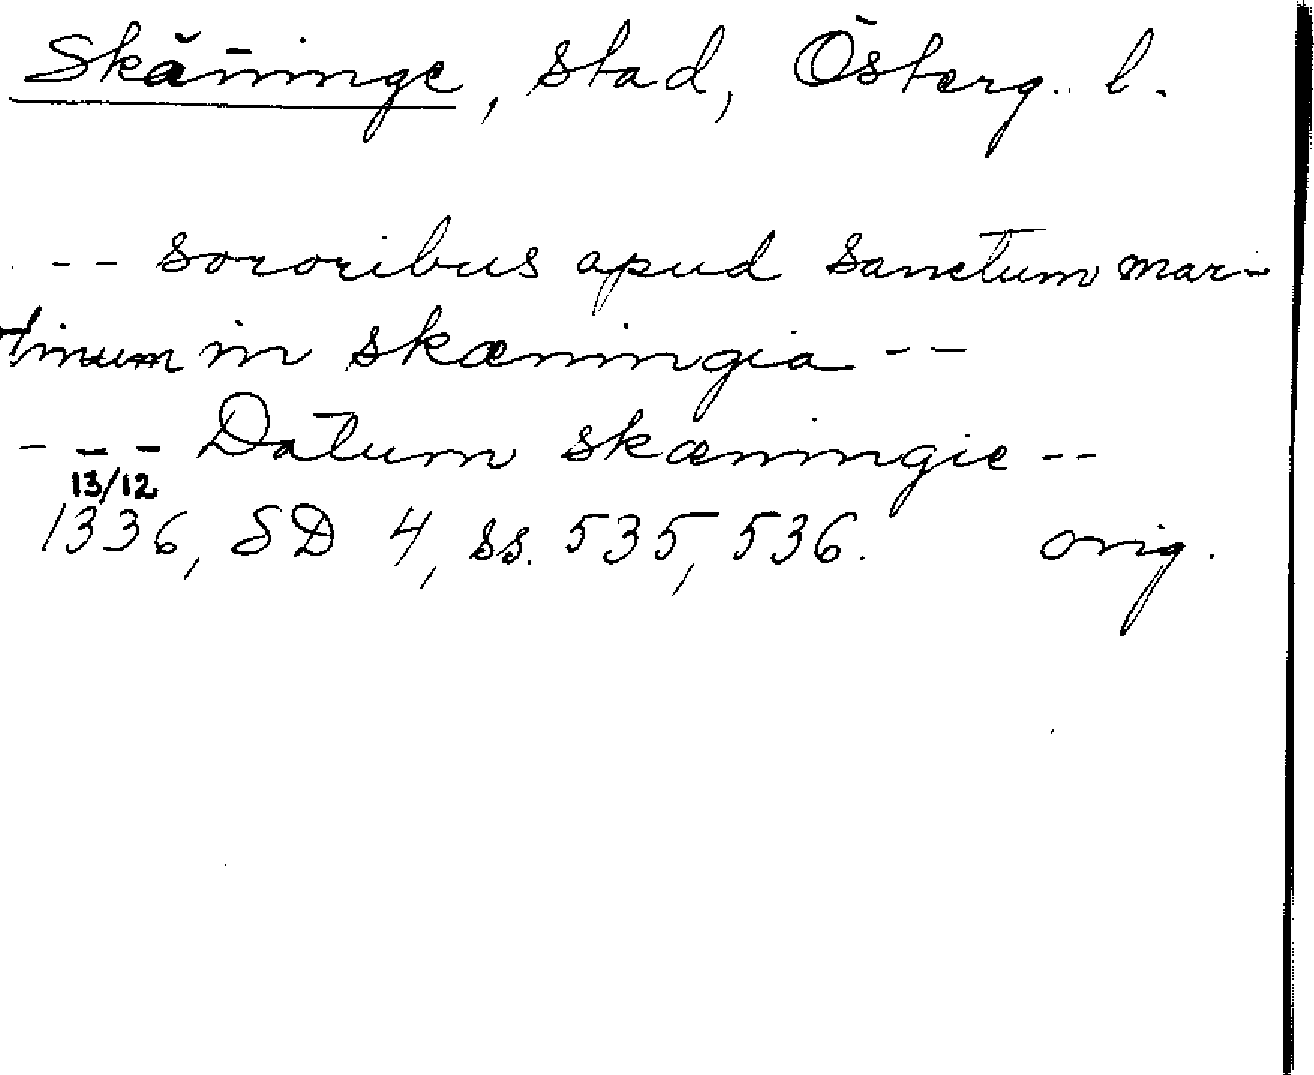 Skänninge, stad, Österg. l.
-- sororibus apud sanctum mar-
tinum in skæningia --
--- Datum skæningie --
13/12
1336, SD 4, ss. 535, 536. orig.